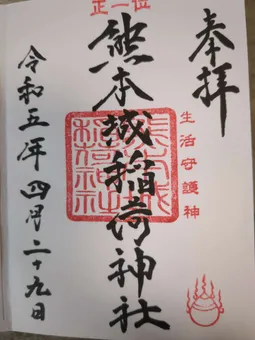 奉拝
生活守護神
正一位
熊本城稲荷神社
令和五年四月二十九日